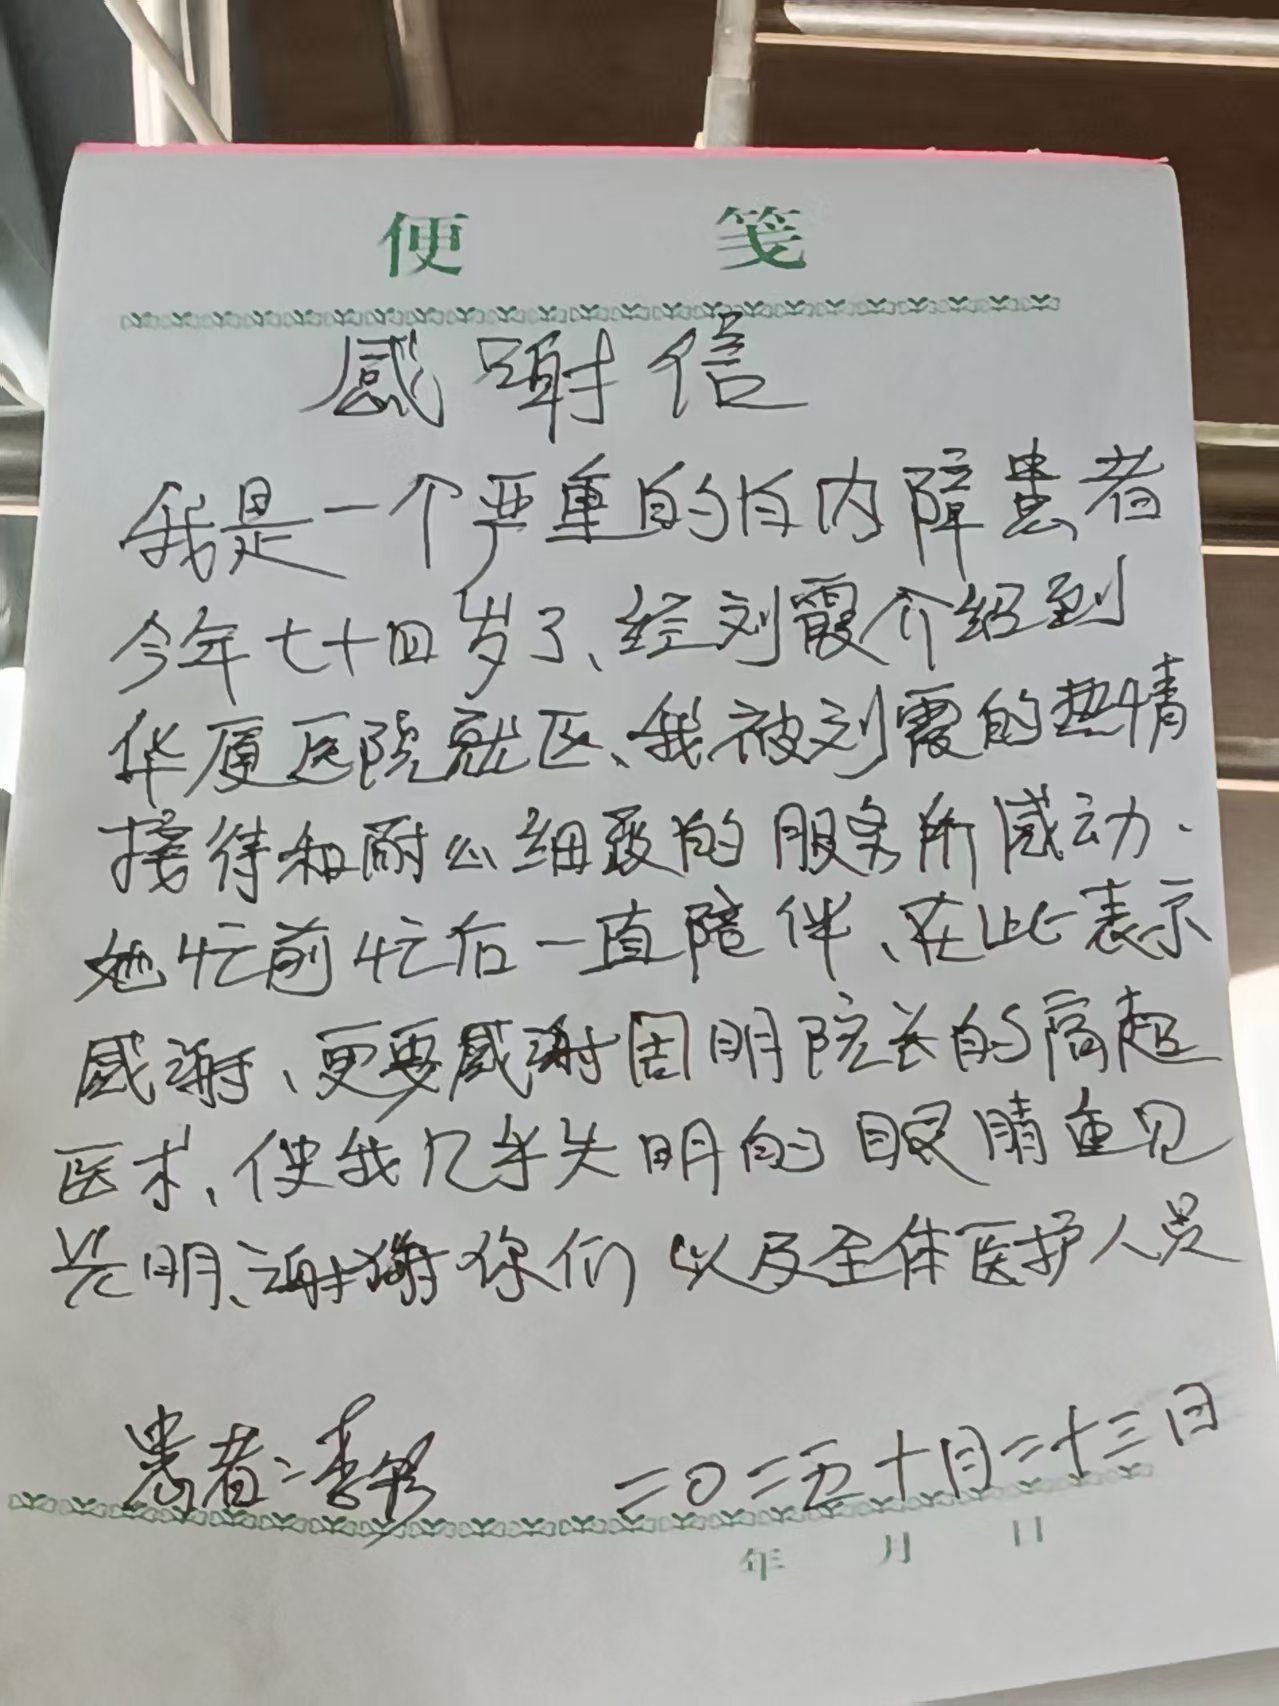 便 笺
感谢信
我是一个严重的白内障患者
今年七十四岁了、经刘霞介绍到
华厦医院就医、我被刘霞的热情
接待和耐心细致的服务所感动.
她忙前忙后一直陪伴、在此表示
感谢、更要感谢周明院长的高超
医术、使我几乎失明的眼睛重见
光明、谢谢你们以及全体医护人员
患者:李
二〇二五十月二十三日
年 月 日